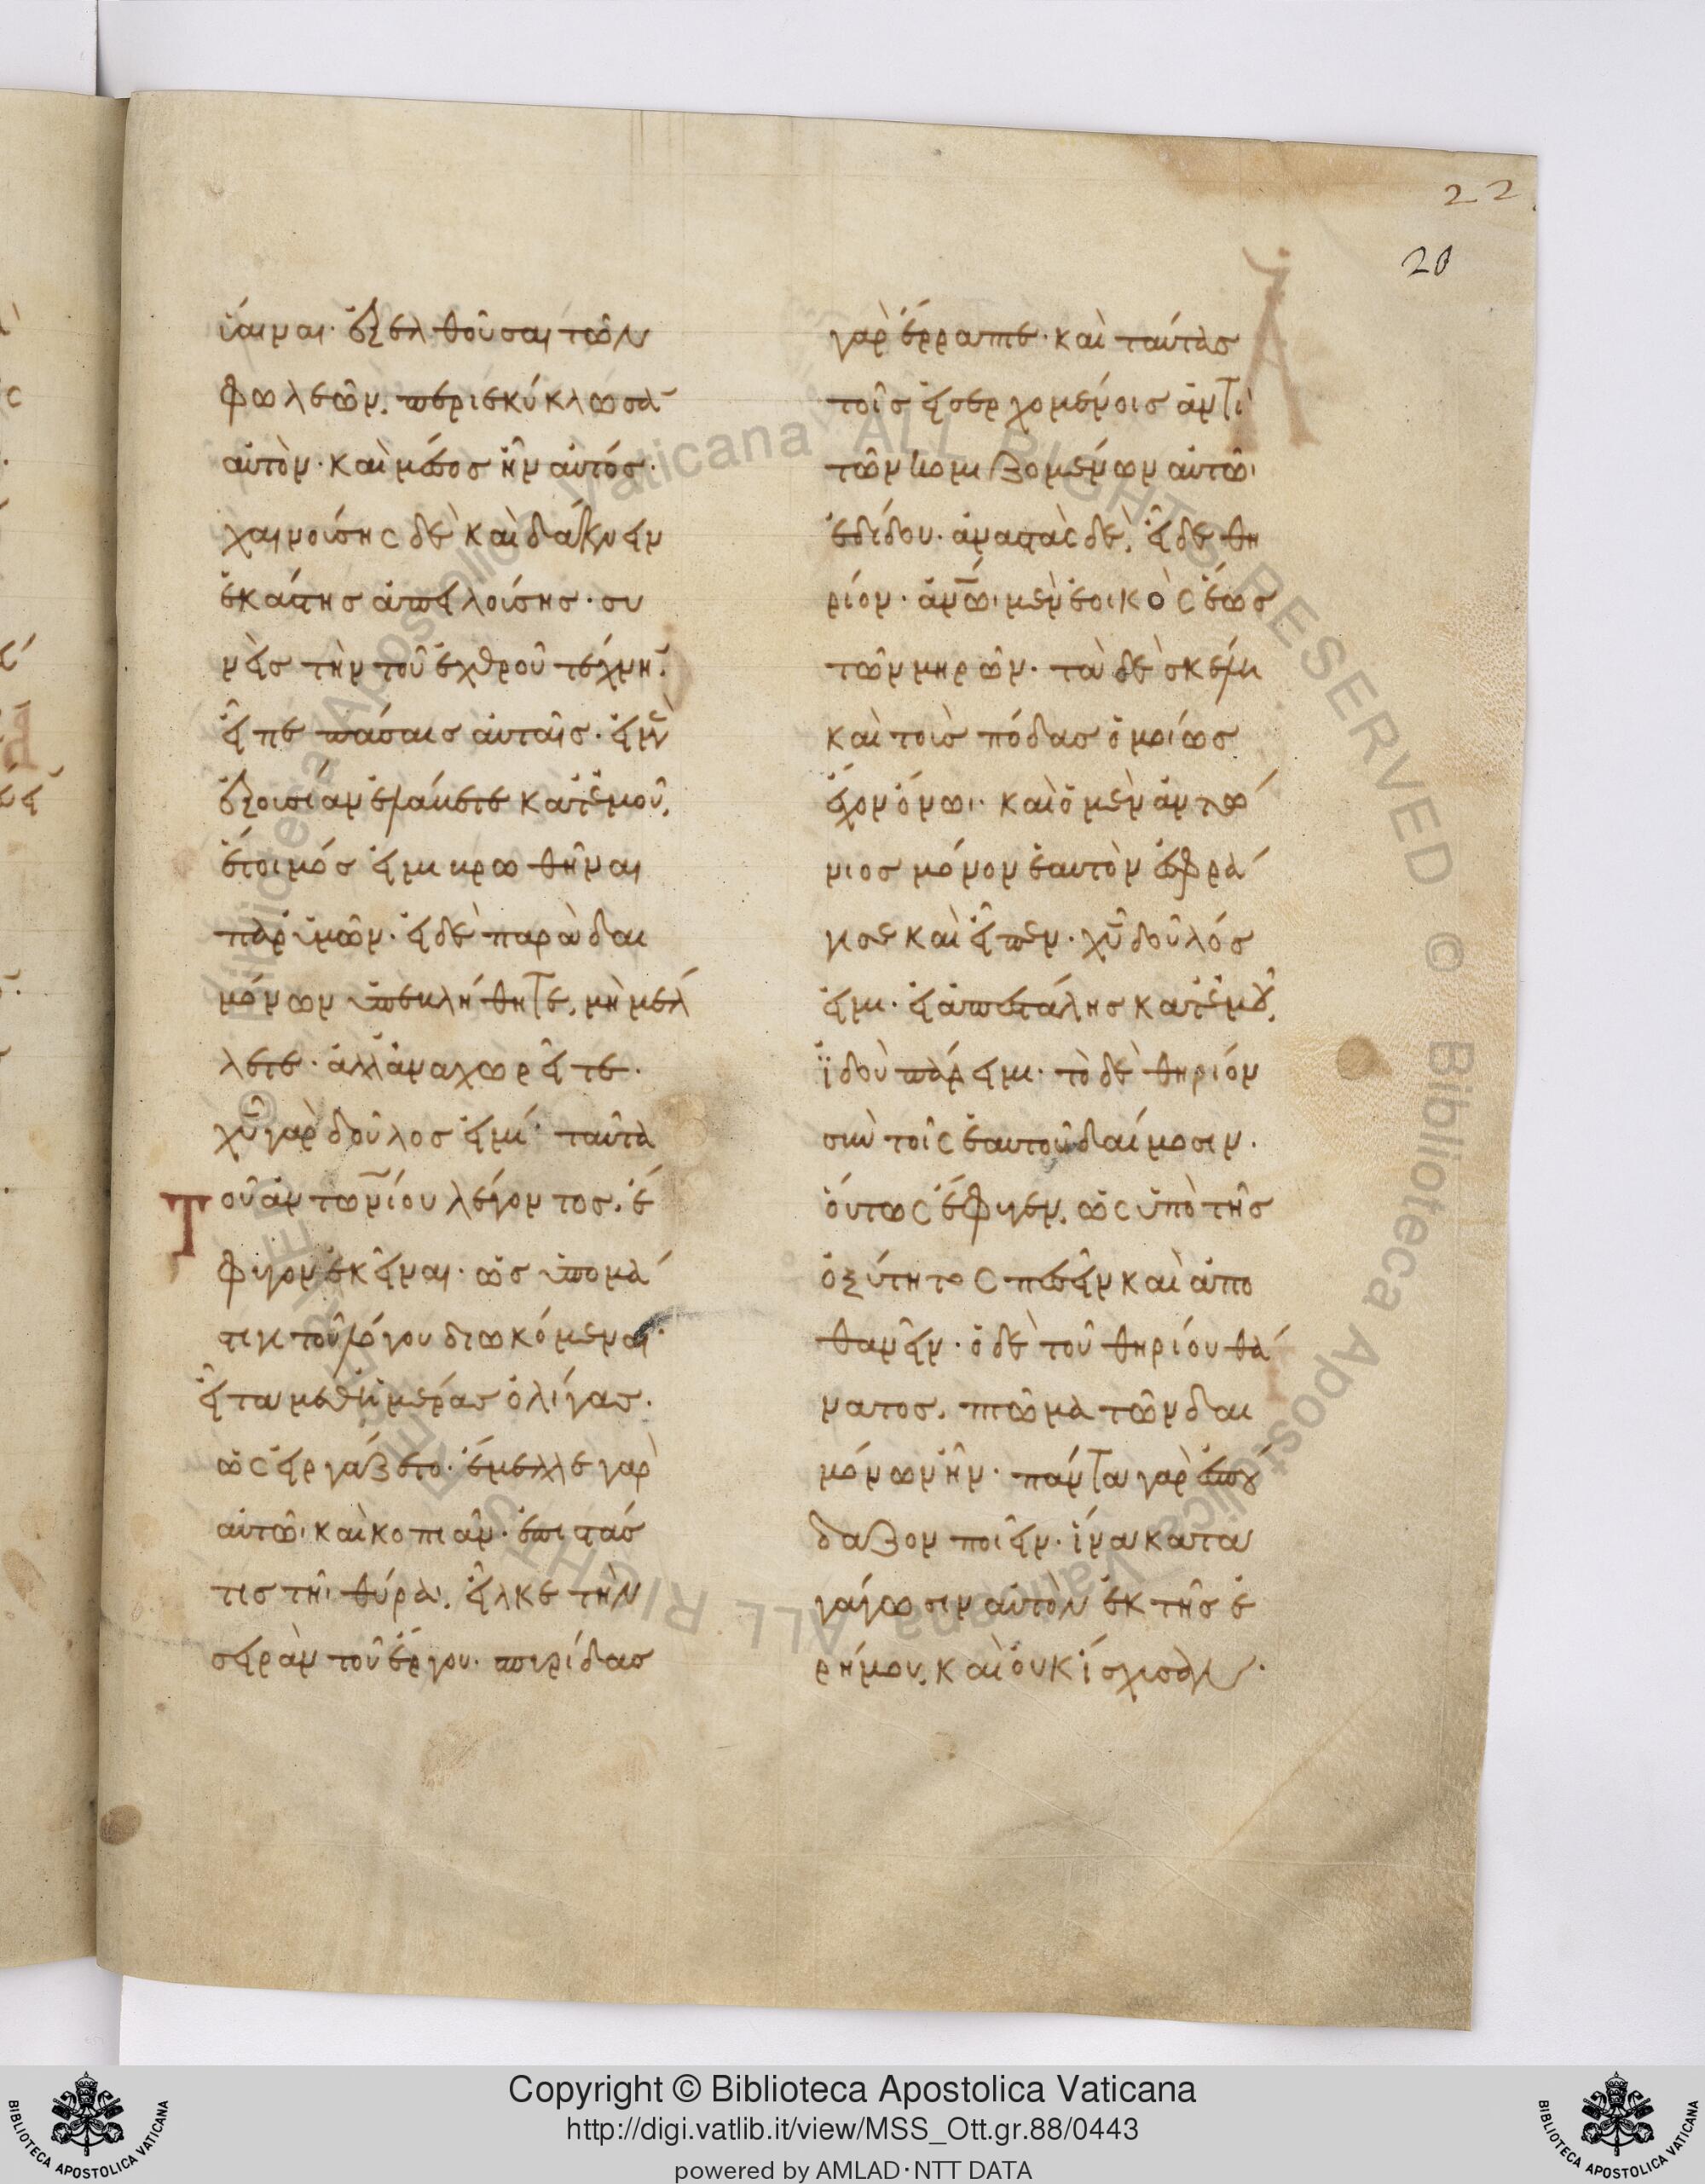 22
20
ὕαιναι· ἐξελθοῦσαι τῶν
φωλεῶν, περιεκύκλωσᾱ
αὐτὸν· καὶ μέσος ἦν αὐτός·
χαινούσης δὲ καὶ δάκνειν
ἑκάστης ἀπειλούσης· συ
νεὶς τὴν τοῦ ἐχθροῦ τέχνη̄·
εἶπε πάσαις αὐταῖς· εἰ μὲν
ἐξουσίαν ἐλάβετε κατ' ἐμοῦ,
ἕτοιμός εἰμι βρωθῆναι
παρ' ὑμῶν· εἰ δὲ παρὰ δαι
μόνων ὑπεβλήθητε, μὴ μέλ
λετε· ἀλλ' ἀναχωρεῖτε·
χῦ γὰρ δοῦλος εἰμί· ταῦτα
τοῦ ἀντωνίου λέγοντος, ἔ
φυγον ἐκεῖναι· ὡς ὑπο μά
στιγι τοῦ λόγου διωκόμεναι·
εἶτα μεθ' ἡμέρας ὀλίγας·
ὡς εἰργάζετο· ἔμελλε γὰρ
αὐτῶ καὶ κοπιᾶν· ἐπιστάς
τις τῆι θύρα, εἷλκε τὴν
σειρὰν τοῦ ἔργου· σπυρίδας
γὰρ ἔρραπτε· καὶ ταύτας
τοῖς εἰσερχομένοις ἀντὶ
τῶν κομιζομένων αὐτῶι
ἐδίδου· ἀναστὰς δὲ, εἶδε θη
ρίον· ἀνω̅ι μὲν ἐοικὸς ἕως
τῶν μηρῶν· τὰ δὲ σκέλη
καὶ τοὺς πόδας ὁμοίως
ἔχον ὄνωι· καὶ ὁ μὲν ἀντώ
νιος μόνον ἑαυτὸν ἐσφρά
γισε καὶ εἶπεν· χῦ δοῦλός
εἰμι· εἰ ἀπεστάλης κατ' ἐμοῦ,
ἰδοὺ πάρειμι· τὸ δὲ θηρίον
σὺν τοῖς ἑαυτοῦ δαίμοσιν·
οὕτως ἔφυγεν, ὡς ὑπὸ τῆς
ὀξύτητος πεσεῖν καὶ ἀπο
θανεῖν· ὁ δὲ τοῦ θηρίου θά
νατος, πτῶμα τῶν δαι
μόνων ἦν· πάντα γὰρ ἐσπού
δαζον ποιεῖν· ἵνα κατα
γάγωσιν αὐτὸν ἐκ τῆς ἐ
ρήμου, καὶ οὐκ ἴσχυσαν·
© Biblioteca Apostolica Vaticana ALL RIGHTS RESERVED © Biblioteca Apostolica Vaticana ALL RIGHTS RESERVED
Copyright © Biblioteca Apostolica Vaticana
http://digi.vatlib.it/view/MSS_Ott.gr.88/0443
powered by AMLAD·NTT DATA
BIBLIOTECA APOSTOLICA VATICANA
BIBLIOTECA APOSTOLICA VATICANA